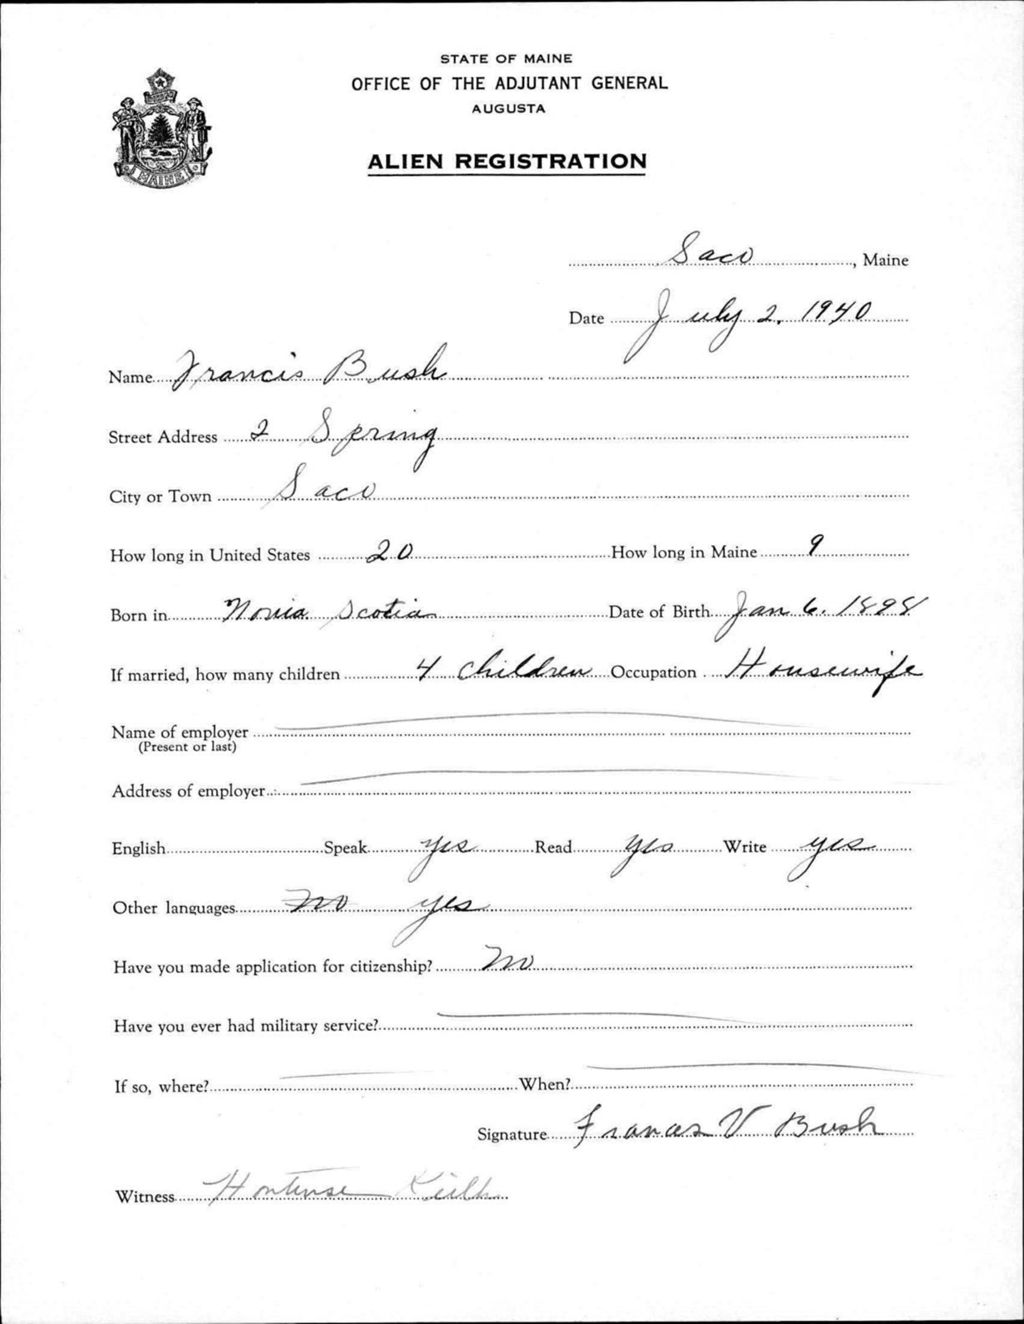 STATE OF MAINE
OFFICE OF THE ADJUTANT GENERAL
AUGUSTA
MAINE
ALIEN REGISTRATION
Saco, Maine
Date July 2, 1940
Name Francis Bush
Street Address 2 Spring
City or Town Saco
How long in United States 20 How long in Maine 9
Born in Novia Scotia Date of Birth Jan 6, 1898
If married, how many children 4 children Occupation Housewife
Name of employer
(Present or last)
Address of employer
English Speak yes Read yes Write yes
Other languages no yes
Have you made application for citizenship? No
Have you ever had military service?
If so, where? When?
Signature Frances V Bush
Witness Hortense